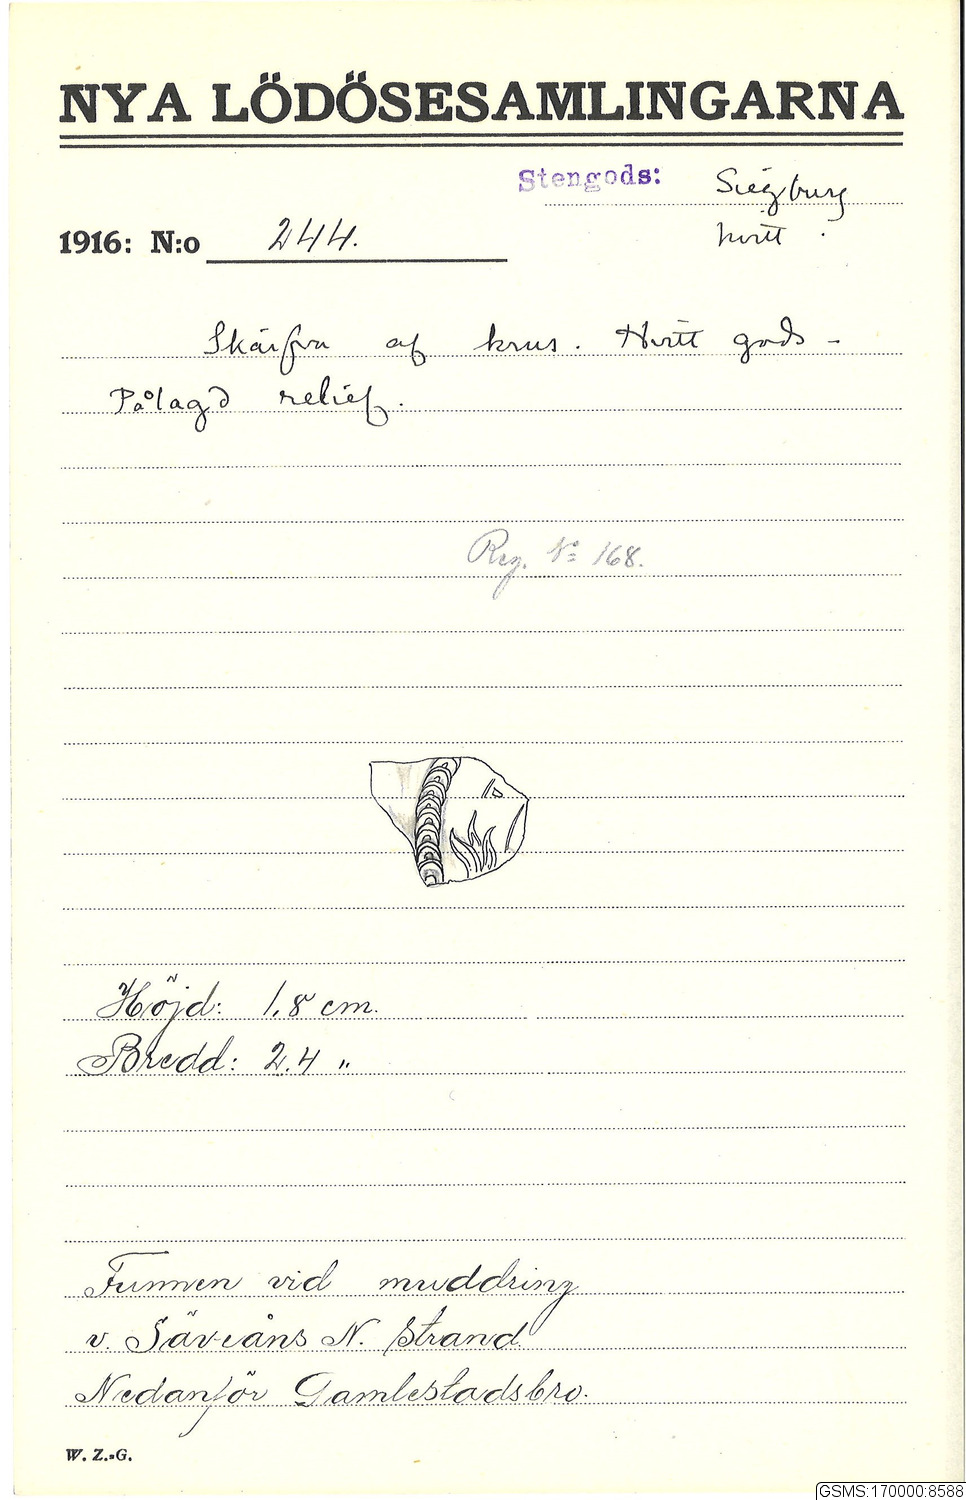 NYA LÖDÖSESAMLINGARNA
Stengods: Siegburg
hvitt.
1916: N:o 244.
Skärfva af krus. Hvitt gods -
Pålagd relief.
Reg. No 168.
Höjd: 1,8 cm.
Bredd: 2.4 "
Funnen vid muddring
v. Säveåns N. Strand
Nedanför Gamlestadsbro.
W. Z.-G.
GSMS:170000:8588